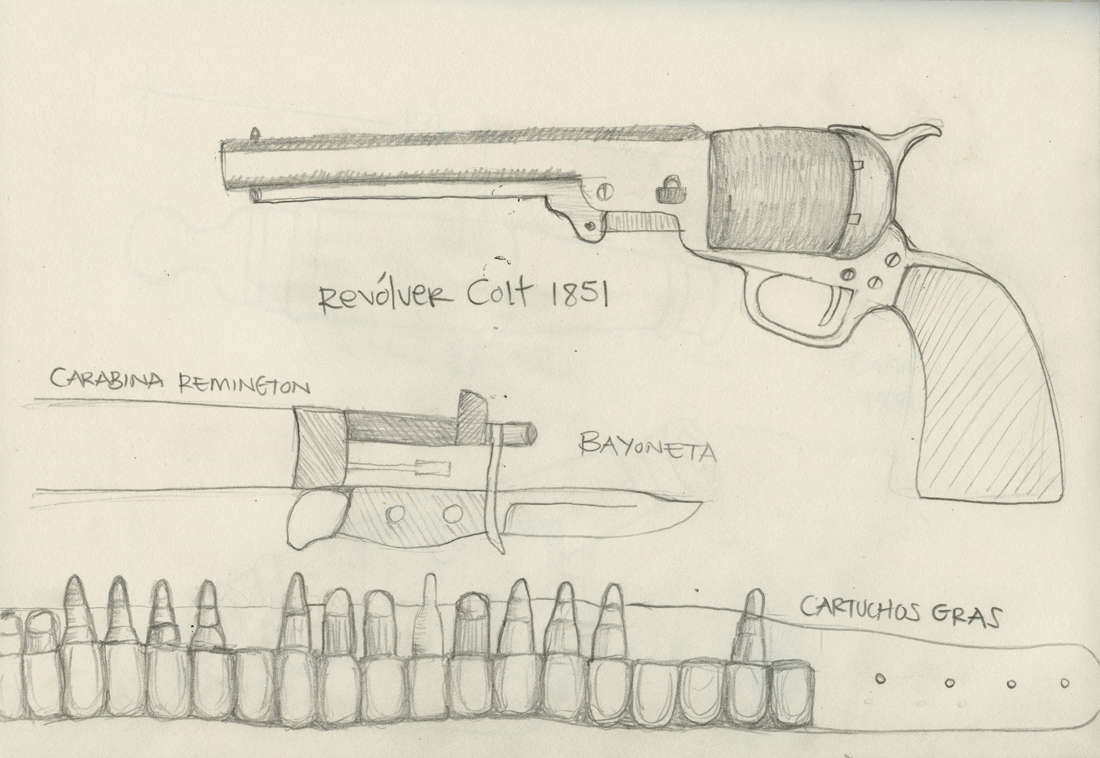 Revólver Colt 1851
CARABINA REMINGTON
BAYONETA
CARTUCHOS GRAS